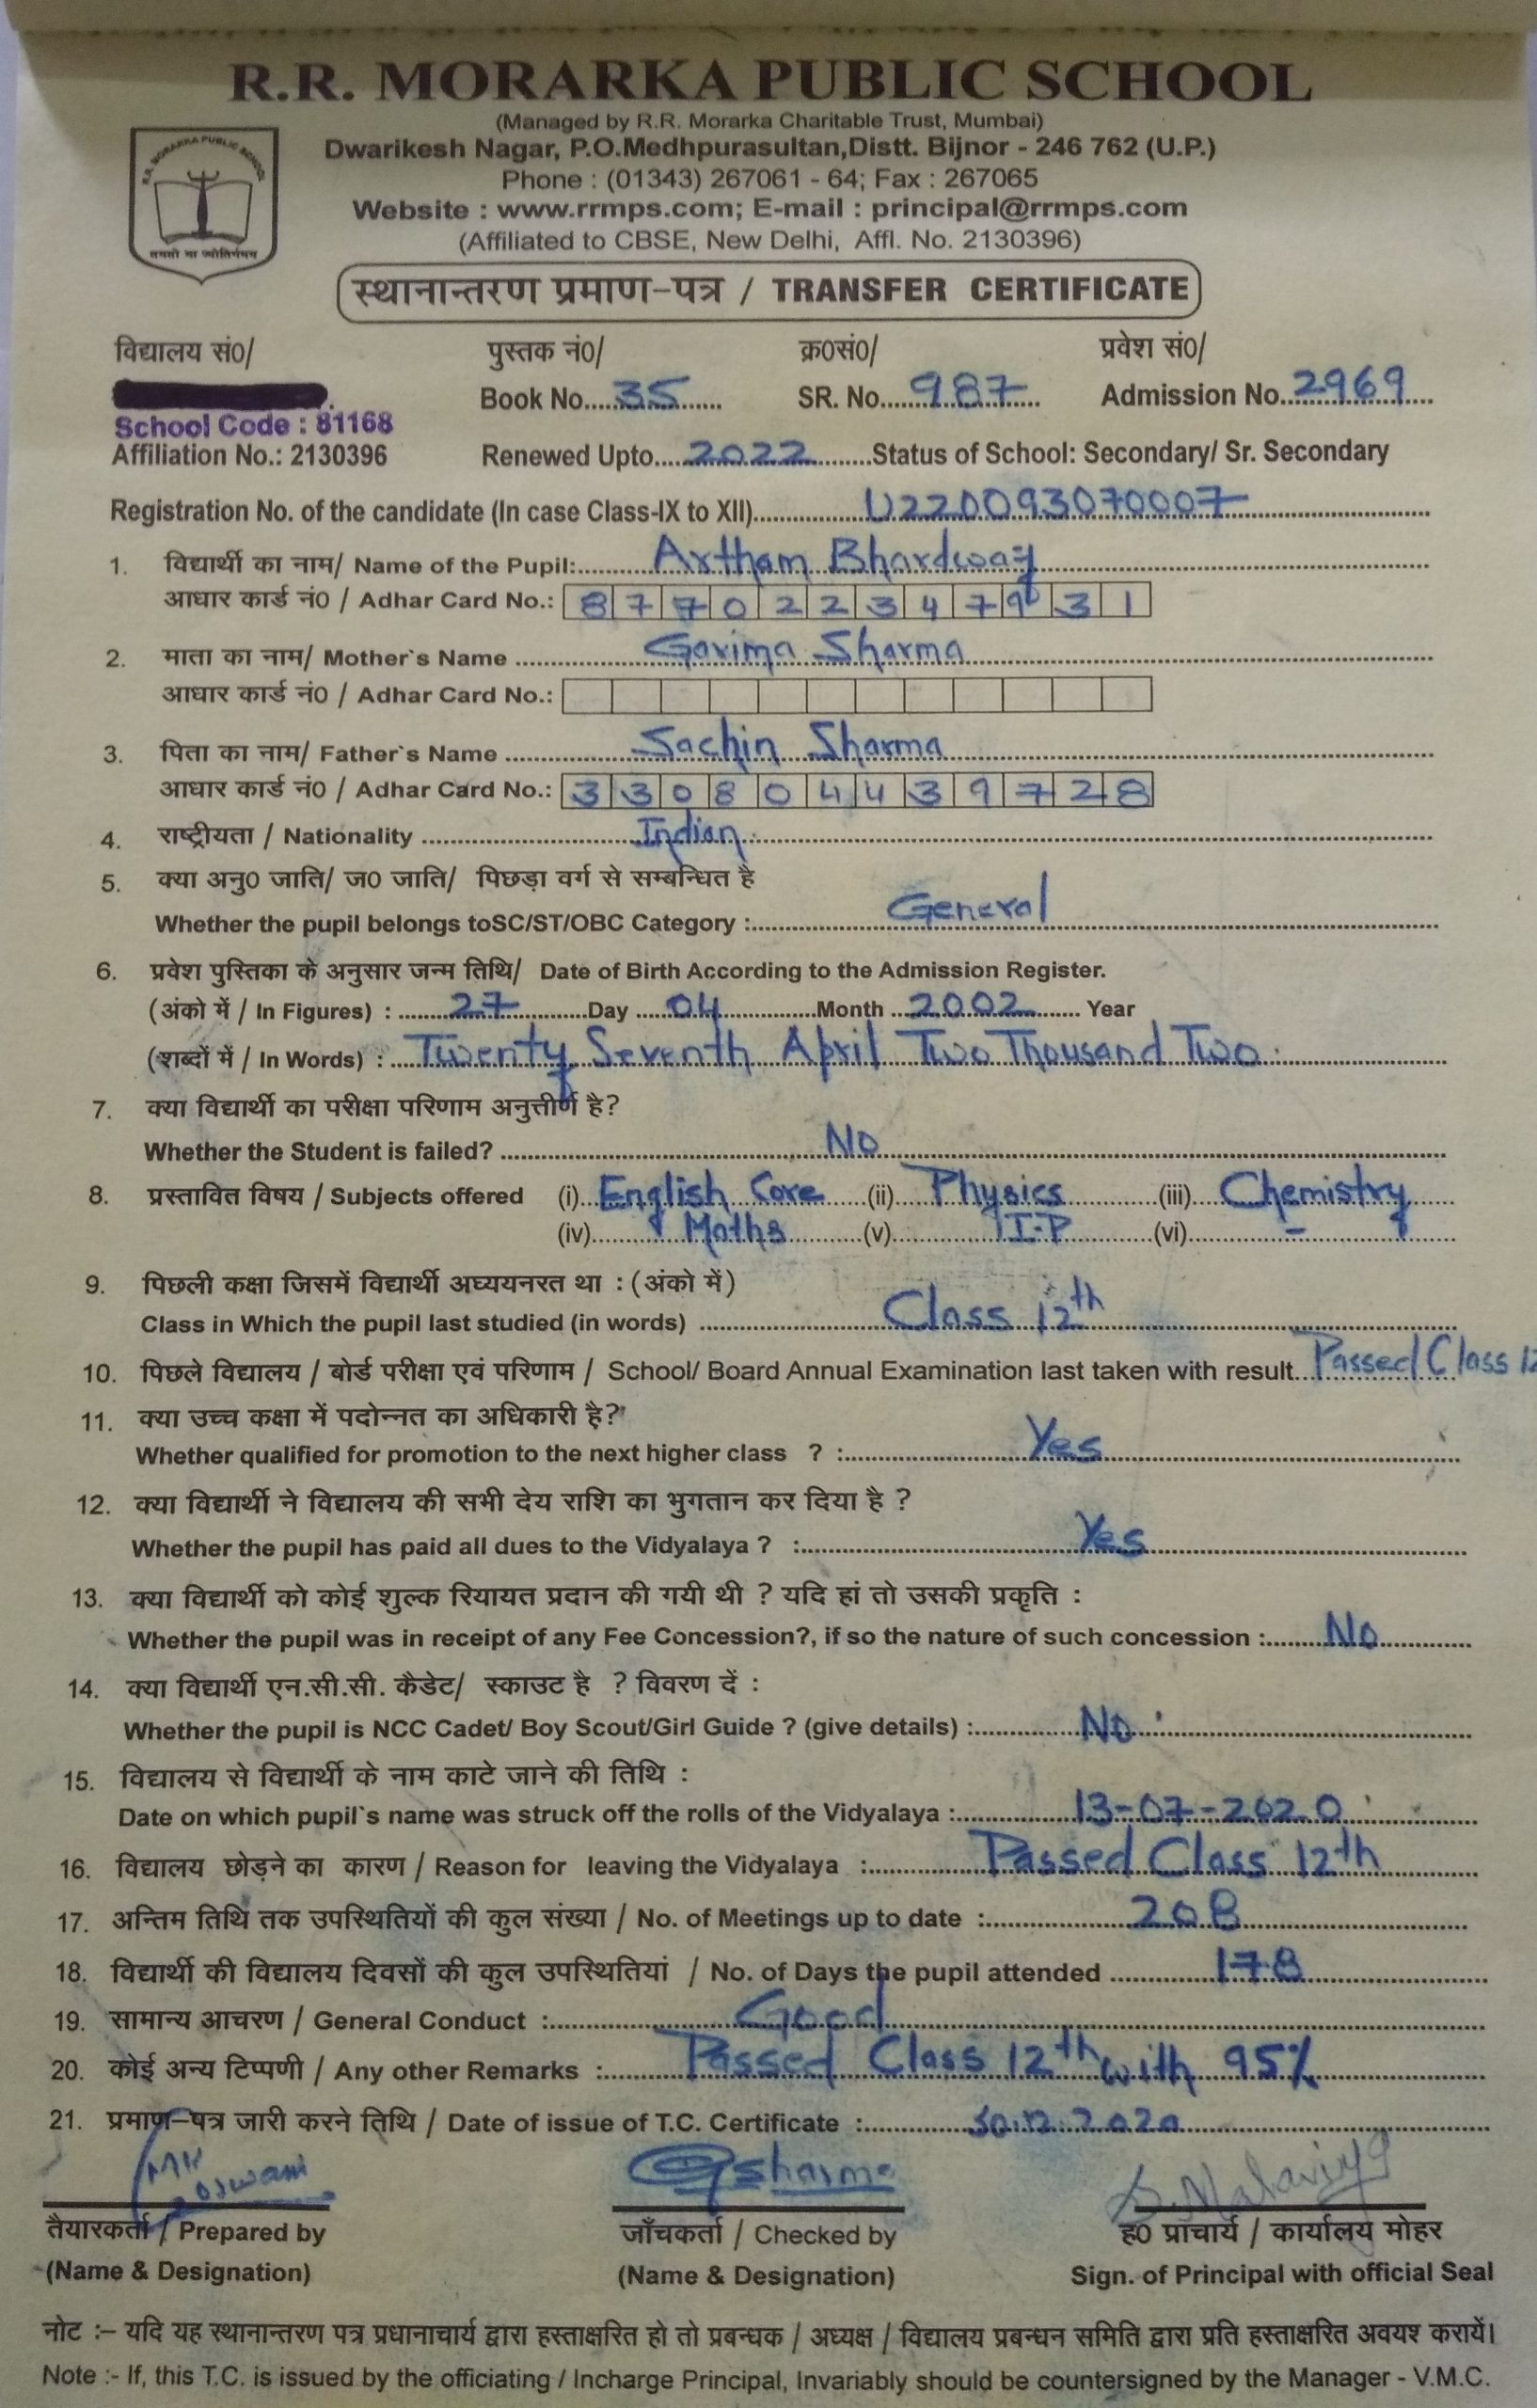 R.R. MORARKA PUBLIC SCHOOL
(Managed by R.R. Morarka Charitable Trust, Mumbai)
Dwarikesh Nagar, P.O.Medhpurasultan,Distt. Bijnor - 246 762 (U.P.)
Phone : (01343) 267061 - 64; Fax : 267065
Website : www.rrmps.com; E-mail : principal@rrmps.com
(Affiliated to CBSE, New Delhi, Affl. No. 2130396)
R.R. MORARKA PUBLIC SCHOOL
तमसो मा ज्योतिर्गमय
स्थानान्तरण प्रमाण-पत्र / TRANSFER CERTIFICATE
विद्यालय सं0/ पुस्तक नं0/ क्र0सं0/ प्रवेश सं0/
Book No. 35 SR. No. 987 Admission No. 2969
School Code : 81168
Affiliation No.: 2130396 Renewed Upto 2022 Status of School: Secondary/ Sr. Secondary
Registration No. of the candidate (In case Class-IX to XII) U220093070007
1. विद्यार्थी का नाम/ Name of the Pupil: Artham Bhardwaj
आधार कार्ड नं0 / Adhar Card No.: 8 7 7 0 2 2 3 4 7 9 3 1
2. माता का नाम/ Mother`s Name Garima Sharma
आधार कार्ड नं0 / Adhar Card No.:
3. पिता का नाम/ Father`s Name Sachin Sharma
आधार कार्ड नं0 / Adhar Card No.: 3 3 0 8 0 4 4 3 9 7 2 8
4. राष्ट्रीयता / Nationality Indian
5. क्या अनु0 जाति/ ज0 जाति/ पिछड़ा वर्ग से सम्बन्धित है
Whether the pupil belongs toSC/ST/OBC Category : General
6. प्रवेश पुस्तिका के अनुसार जन्म तिथि/ Date of Birth According to the Admission Register.
(अंको में / In Figures) : 27 Day 04 Month 2002 Year
(शब्दों में / In Words) : Twenty Seventh April Two Thousand Two.
7. क्या विद्यार्थी का परीक्षा परिणाम अनुत्तीर्ण है?
Whether the Student is failed? No
8. प्रस्तावित विषय / Subjects offered (i) English Core (ii) Physics (iii) Chemistry
(iv) Maths (v) I.P (vi) -
9. पिछली कक्षा जिसमें विद्यार्थी अघ्ययनरत था : (अंको में)
Class in Which the pupil last studied (in words) Class 12th
10. पिछले विद्यालय / बोर्ड परीक्षा एवं परिणाम / School/ Board Annual Examination last taken with result Passed Class 12
11. क्या उच्च कक्षा में पदोन्नत का अधिकारी है?
Whether qualified for promotion to the next higher class ? : Yes
12. क्या विद्यार्थी ने विद्यालय की सभी देय राशि का भुगतान कर दिया है ?
Whether the pupil has paid all dues to the Vidyalaya ? : Yes
13. क्या विद्यार्थी को कोई शुल्क रियायत प्रदान की गयी थी ? यदि हां तो उसकी प्रकृति :
Whether the pupil was in receipt of any Fee Concession?, if so the nature of such concession : No
14. क्या विद्यार्थी एन.सी.सी. कैडेट/ स्काउट है ? विवरण दें :
Whether the pupil is NCC Cadet/ Boy Scout/Girl Guide ? (give details) : No
15. विद्यालय से विद्यार्थी के नाम काटे जाने की तिथि :
Date on which pupil`s name was struck off the rolls of the Vidyalaya : 13-07-2020
16. विद्यालय छोड़ने का कारण / Reason for leaving the Vidyalaya : Passed Class 12th
17. अन्तिम तिथि तक उपस्थितियों की कुल संख्या / No. of Meetings up to date : 208
18. विद्यार्थी की विद्यालय दिवसों की कुल उपस्थितियां / No. of Days the pupil attended 178
19. सामान्य आचरण / General Conduct : Good
20. कोई अन्य टिप्पणी / Any other Remarks : Passed Class 12th with 95%
21. प्रमाण-पत्र जारी करने तिथि / Date of issue of T.C. Certificate : 30.12.2020
Gsharma S. Malaviya
तैयारकर्ता / Prepared by जाँचकर्ता / Checked by ह0 प्राचार्य / कार्यालय मोहर
(Name & Designation) (Name & Designation) Sign. of Principal with official Seal
नोट :– यदि यह स्थानान्तरण पत्र प्रधानाचार्य द्वारा हस्ताक्षरित हो तो प्रबन्धक / अध्यक्ष / विद्यालय प्रबन्धन समिति द्वारा प्रति हस्ताक्षरित अवयश करायें।
Note :- If, this T.C. is issued by the officiating / Incharge Principal, Invariably should be countersigned by the Manager - V.M.C.